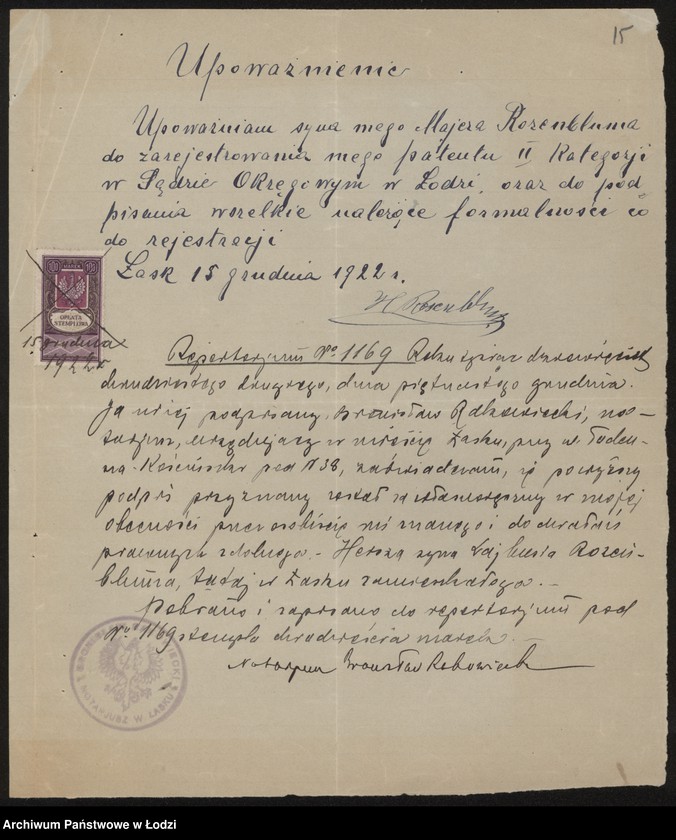 15
Upoważnienie
Upoważniam syna mego Majera Rozenbluma
do zarejestrowania mego patentu II Kategorji
w Sądzie Okręgowym w Łodzi, oraz do pod-
pisania wszelkie należące formalności co
do rejestracji
Łask 15 grudnia 1922 r.
100 100
OPŁATA
STEMPLOWA
15 grudnia
1922 r
H Rosenblum
Repertorjum No. 1169 Roku tysiąc dziewięćset
dwudziestego drugiego, dnia piętnastego grudnia.
Ja niżej podpisany, Bronisław, no-
tarjusz, urzędujący w mieście Łasku, przy ul. Tadeu-
sza Kościuszki pod N 38, zaświadczam, iż powyższy
podpis przyznany został za własnoręczny w mojej
obecności przez osobiście mi znanego i do działań
prawnych zdolnego - Hersza syna Lajbusia Rozen-
bluma, tutaj w Łasku zamieszkałego. -
Pobrano i zapisano do repertorjum pod
No. 1169 stempla dwadzieścia marek. -
Notarjusz Bronisław
NOTARJUSZ W ŁASKU
Archiwum Państwowe w Łodzi